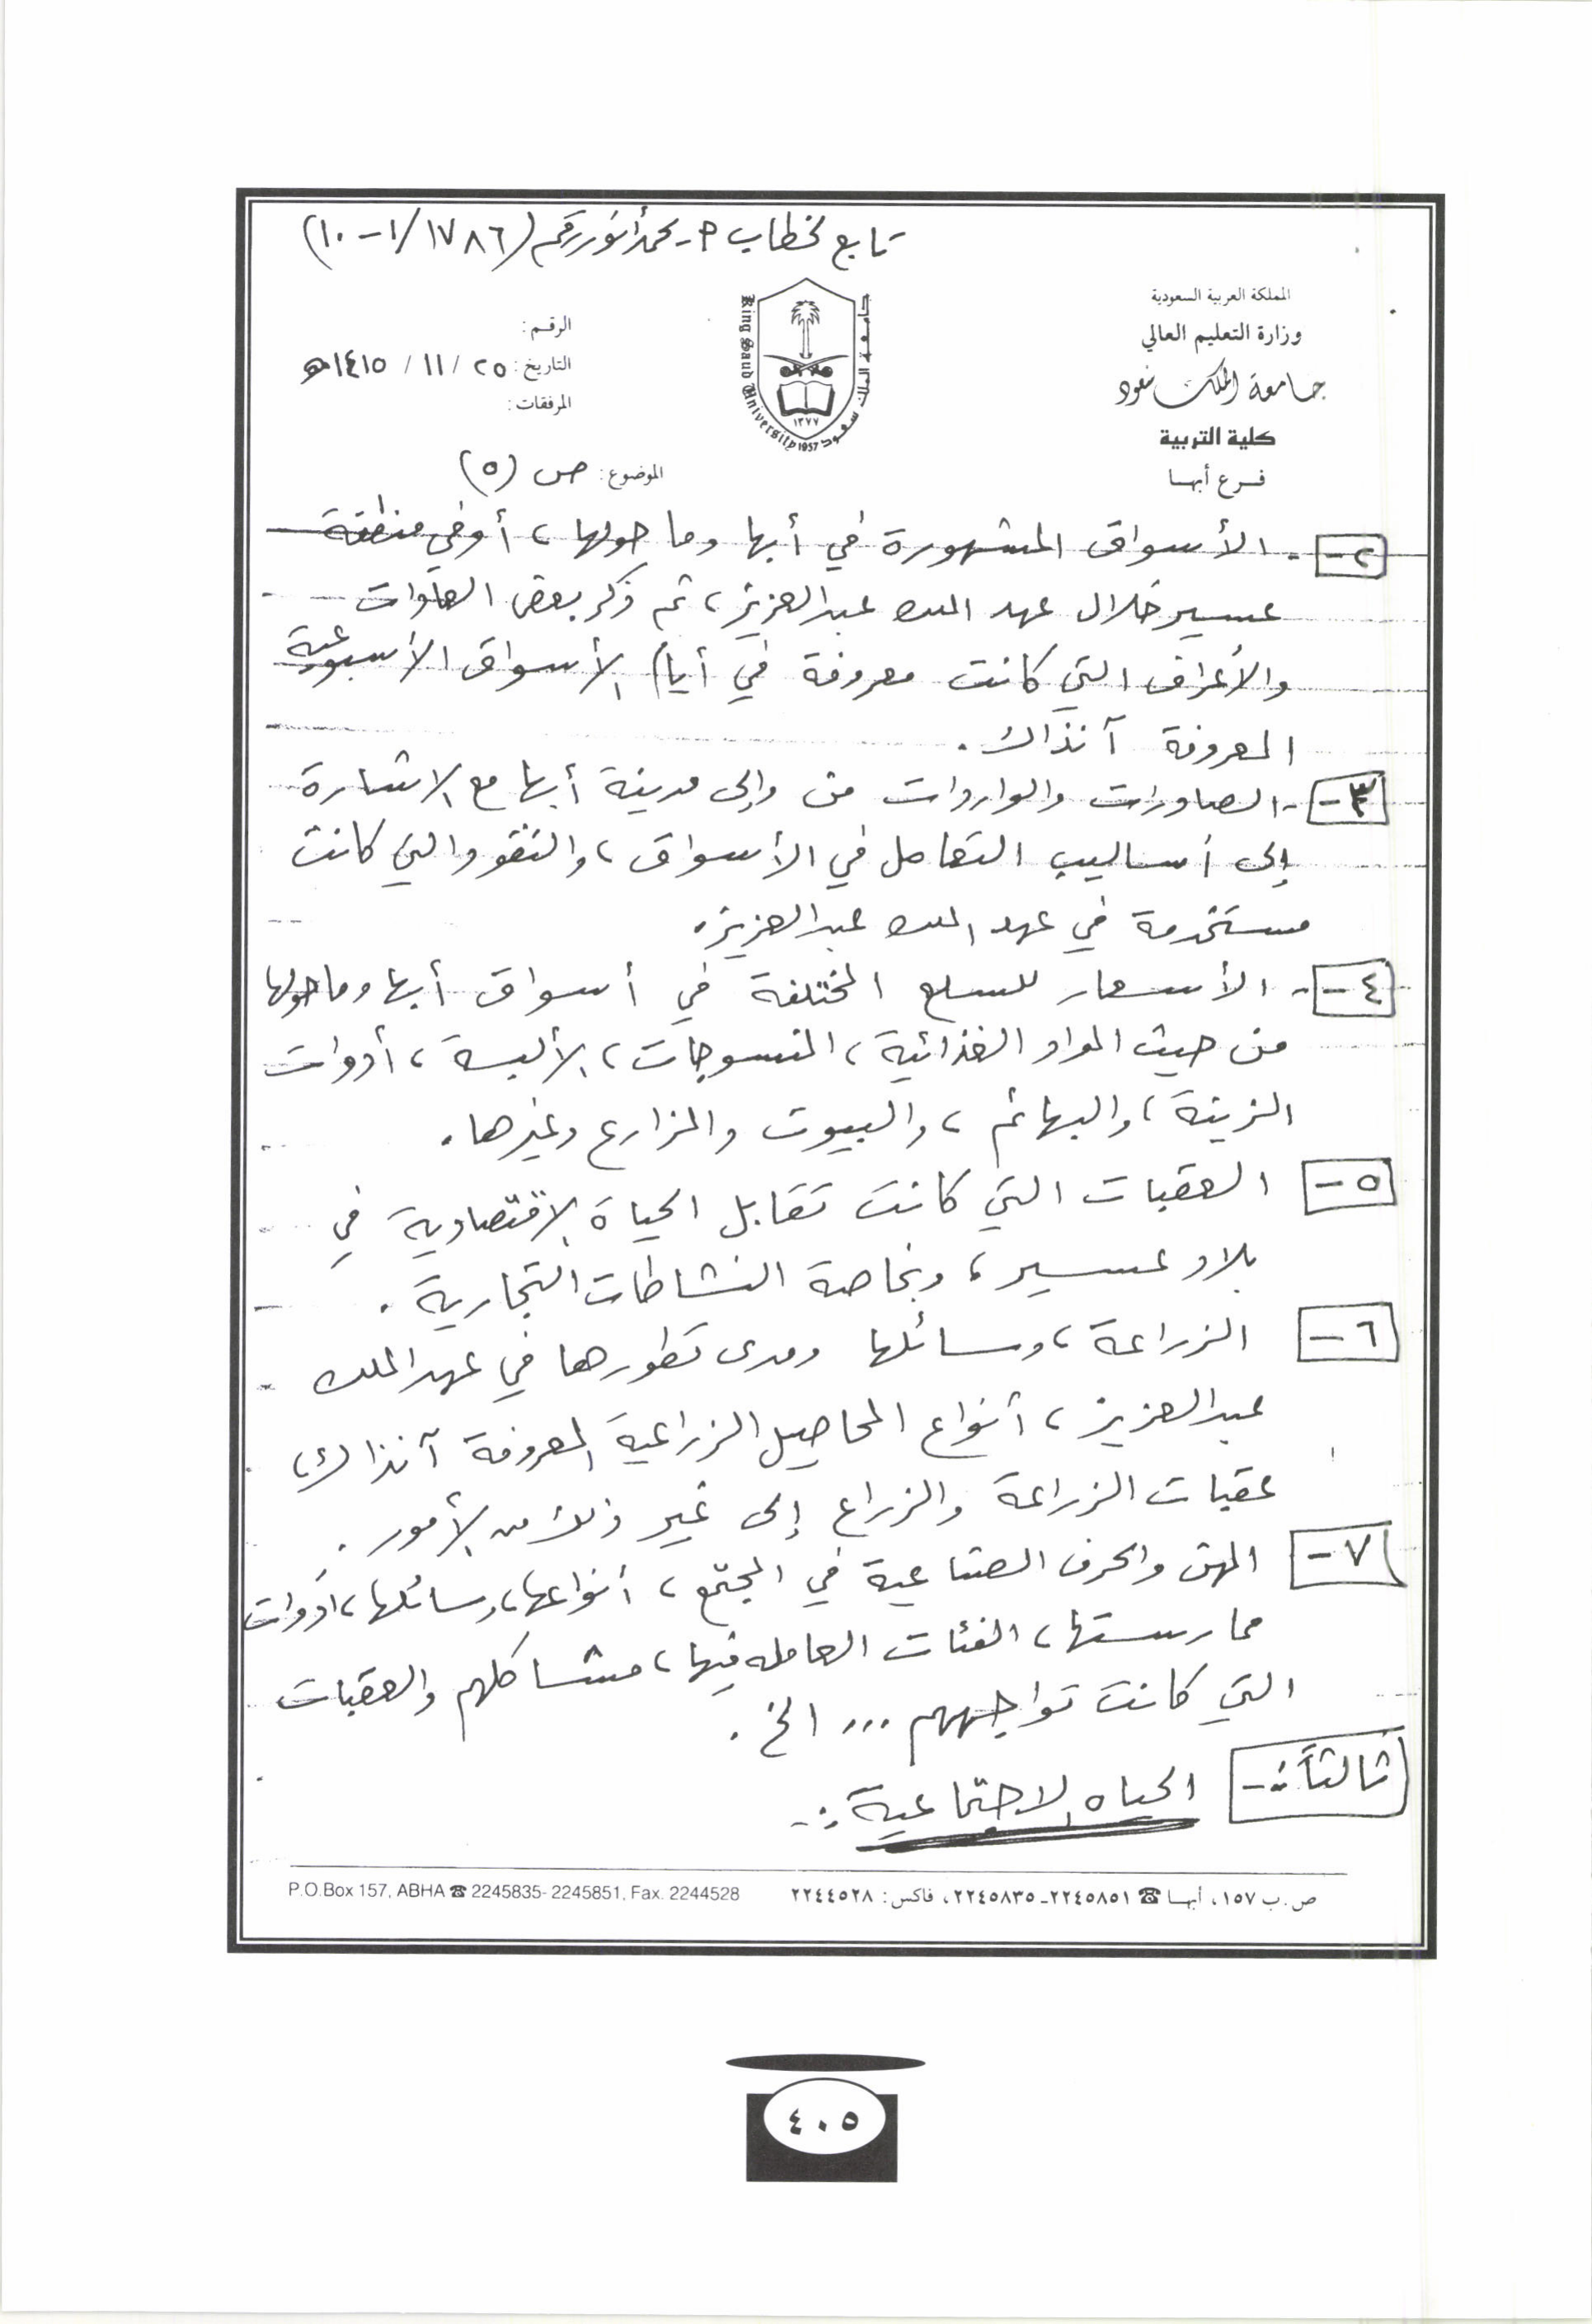 تابع لخطاب م- محمد أنور رقم (١٧٨٦/ ١-١٠)
المملكة العربية السعودية
وزارة التعليم العالي
جامعة الملك سعود
كلية التربية
فرع أبها
King Saud University 1957
جامعة الملك سعود
١٣٧٧
الرقم:
التاريخ: ٢٥ / ١١ / ١٤١٥هـ
المرفقات:
الموضوع: ص (٥)
٢- الأسواق المشهورة في أبها وما حولها، أو في منطقة
عسير خلال عهد الملك عبدالعزيز، ثم ذكر بعض العادات
والأعراف التي كانت معروفة في أيام الأسواق الأسبوعية
المعروفة آنذاك.
٣- الصادرات والواردات من وإلى مدينة أبها مع الإشارة
إلى أساليب التعامل في الأسواق، والنقود التي كانت
مستخدمة في عهد الملك عبدالعزيز.
٤- الأسعار للسلع المختلفة في أسواق أبها وما حولها
من حيث المواد الغذائية، المنسوجات، الألبسة، أدوات
الزينة، والبهائم، والبيوت والمزارع وغيرها.
٥- العقبات التي كانت تقابل الحياة الاقتصادية في
بلاد عسير، وبخاصة النشاطات التجارية.
٦- الزراعة، وسائلها ومدى تطورها في عهد الملك
عبدالعزيز، أنواع المحاصيل الزراعية المعروفة آنذاك،
عقبات الزراعة والزراع إلى غير ذلك من الأمور.
٧- المهن والحرف الصناعية في المجتمع، أنواعها، وسائلها، أدوات
ممارستها، الفئات العامله فيها، مشاكلهم والعقبات
التي كانت تواجههم ... الخ.
ثالثاً:- الحياه الاجتماعية :-
P.O.Box 157, ABHA ☎ 2245835- 2245851, Fax. 2244528
ص.ب ١٥٧، أبها ☎ ٢٢٤٥٨٥١-٢٢٤٥٨٣٥، فاكس: ٢٢٤٤٥٢٨
٤٠٥